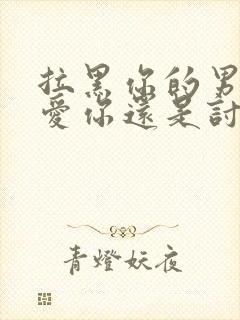 拉黑你的男
愛你還是討
青燈妖夜